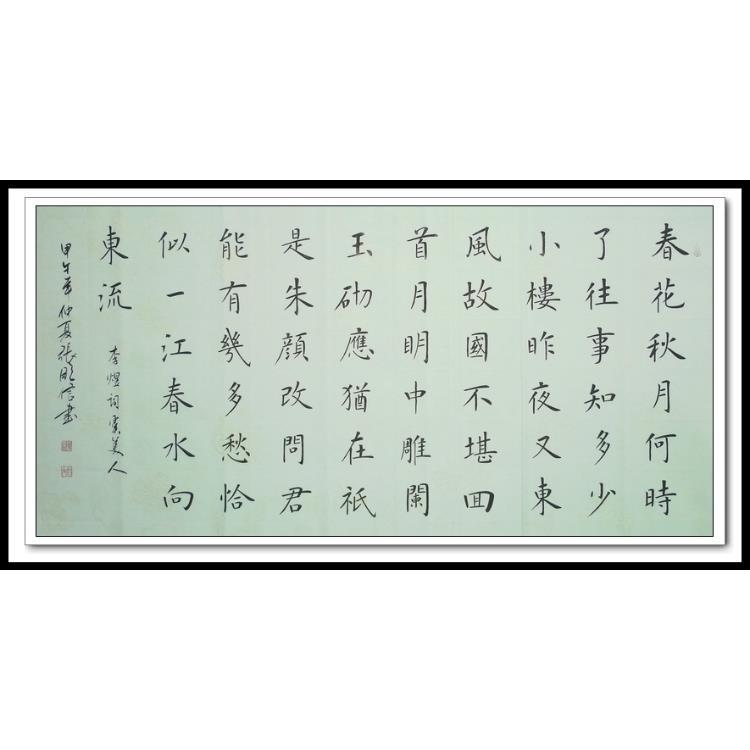 春花秋月何時
了往事知多少
小樓昨夜又東
風故國不堪回
首月明中雕闌
玉砌應猶在祇
是朱顔改問君
能有幾多愁恰
似一江春水向
東流
李煜詞虞美人
甲午年仲夏張明信書